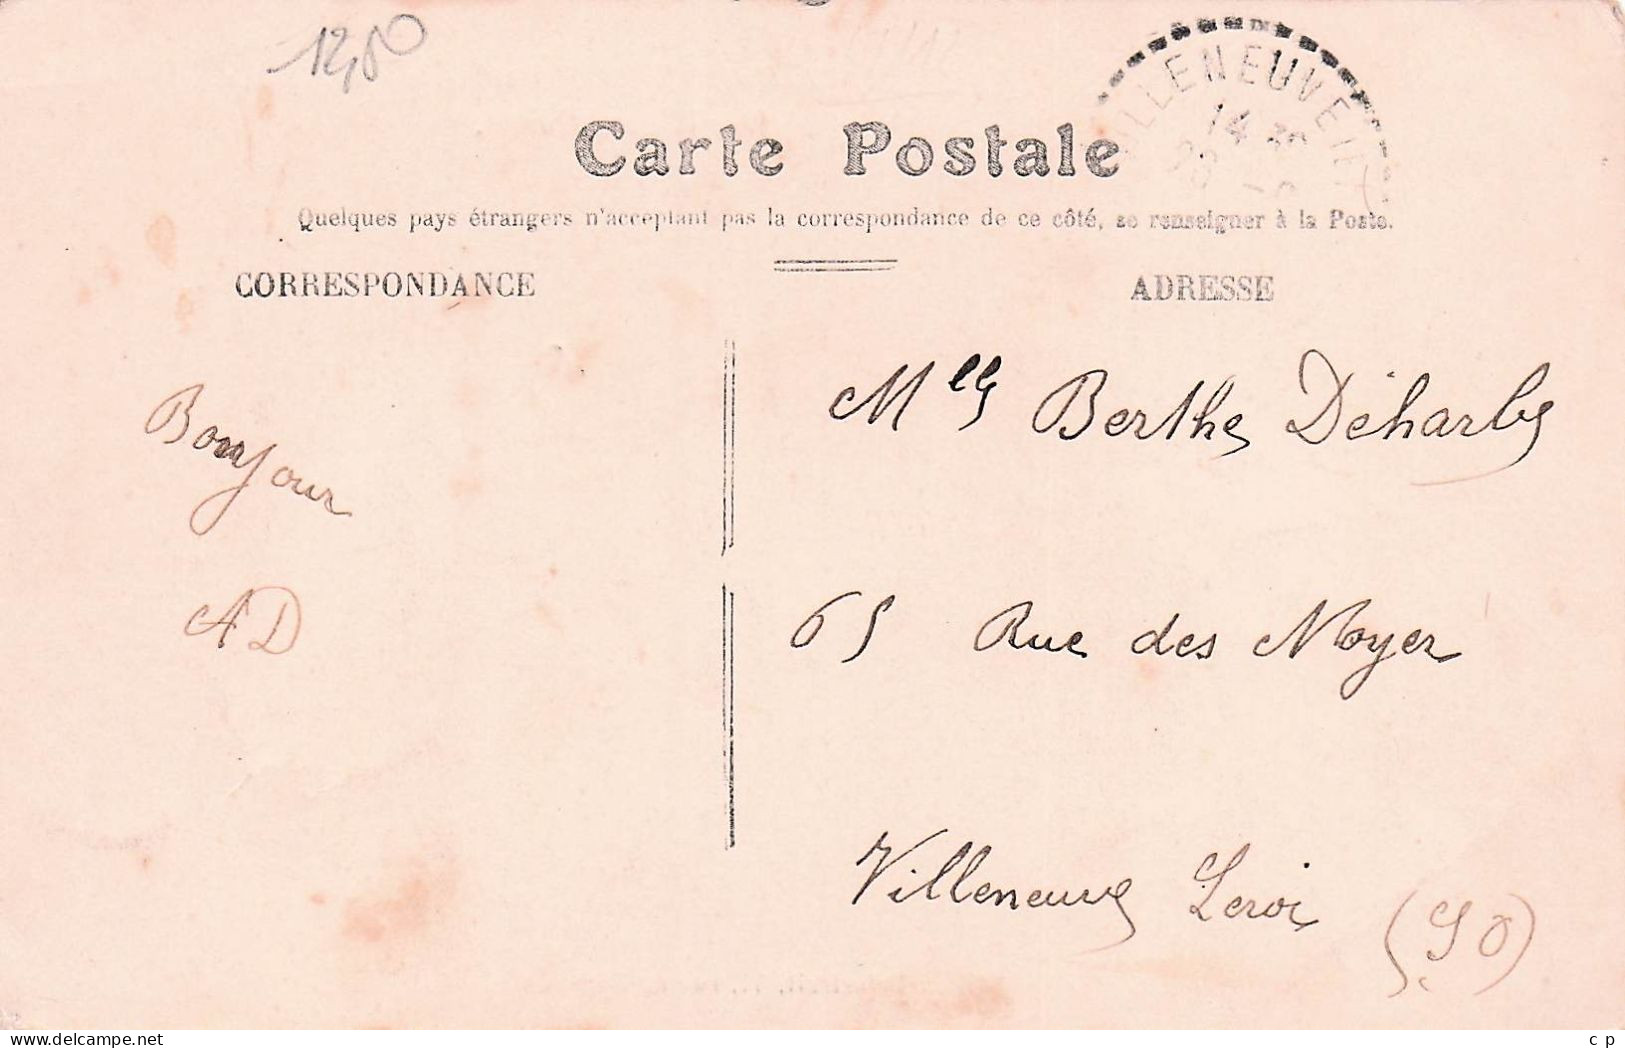 12,50
VILLENEUVE
14 30
Carte Postale
Quelques pays étrangers n'acceptant pas la correspondance de ce côté, se renseigner à la Poste.
CORRESPONDANCE
ADRESSE
Bonjour
AD
Mlle Berthe Déharbe
65 Rue des Noyer
Villeneuve Leroi (SO)
delcampe.net
c p